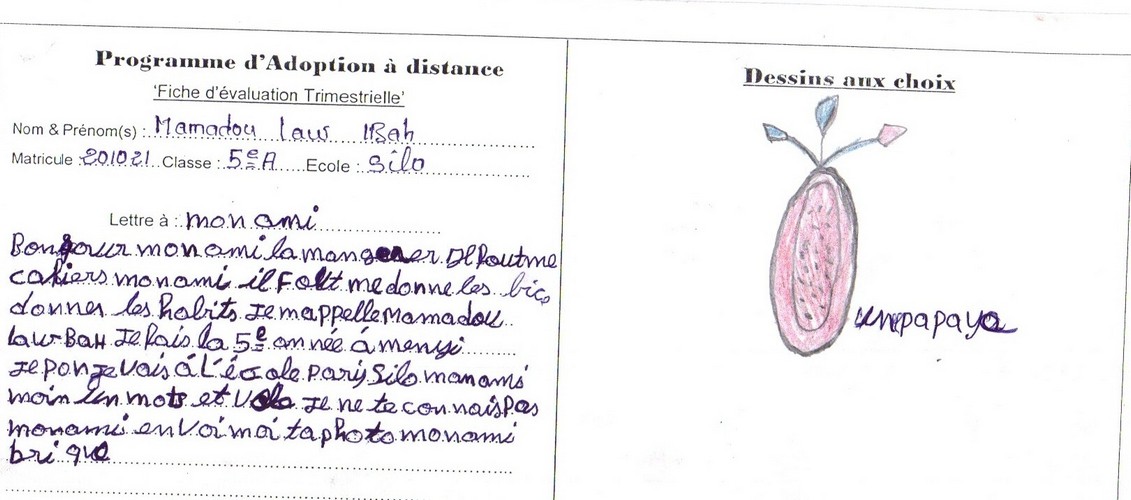 Programme d'Adoption à distance
'Fiche d'évaluation Trimestrielle'
Nom & Prénom(s) : Mamadou law Bah
Matricule : 201021 Classe : 5e A Ecole : Silo
Lettre à : mon ami
Bonjour mon ami la manger Il Pout me
cahiers mon ami il Folt me donne les bics
donner les habits Je mappelle Mamadou
law BaH Je Fais la 5e année á
Je vais á L'école Silo mon ami
moin un mots et Je ne te connais Pas
mon ami en Voi moi ta photo mon ami
brique
Dessins aux choix
une papaya